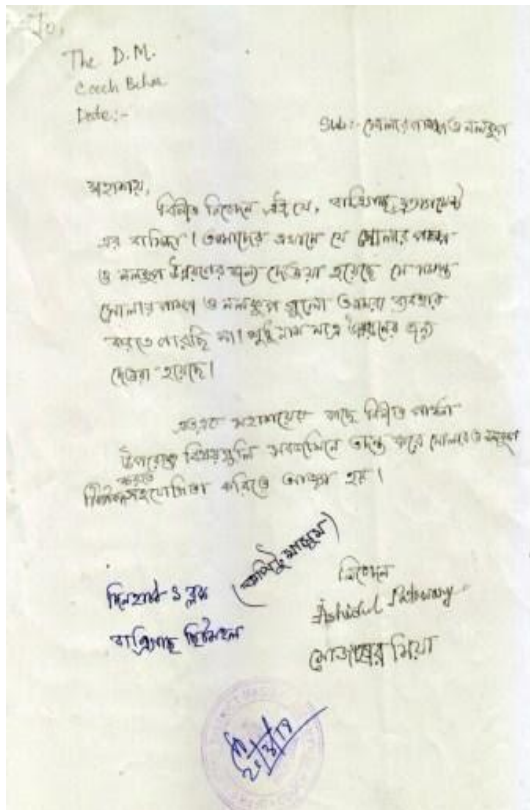 To,
The D.M.
Cooch Behar
Date:-
Sub:- সোলার পাম্প ও নলকূপ
মহাশয়,
বিনীত নিবেদন এই যে, বাত্রিগাছ
এর বাসিন্দা। আমাদের এখানে যে সোলার পাম্প
ও নলকূপ উন্নয়নের জন্য দেওয়া হয়েছে সে সমস্ত
সোলার পাম্প ও নলকূপ গুলো আমরা ব্যবহার
করতে পারছি না। শুধু নাম মাত্র উন্নয়নের জন্য
দেওয়া হয়েছে।
অতএব মহাশয়ের কাছে বিনীত প্রার্থনা
উপরোক্ত বিষয়গুলি তদন্ত করে সোলার ও নলকূপ
করতে
সহযোগিতা করিতে আজ্ঞা হয়।
দিনহাটা ১ ব্লক
বাত্রিগাছ ছিটমহল
নিবেদন
মিয়া